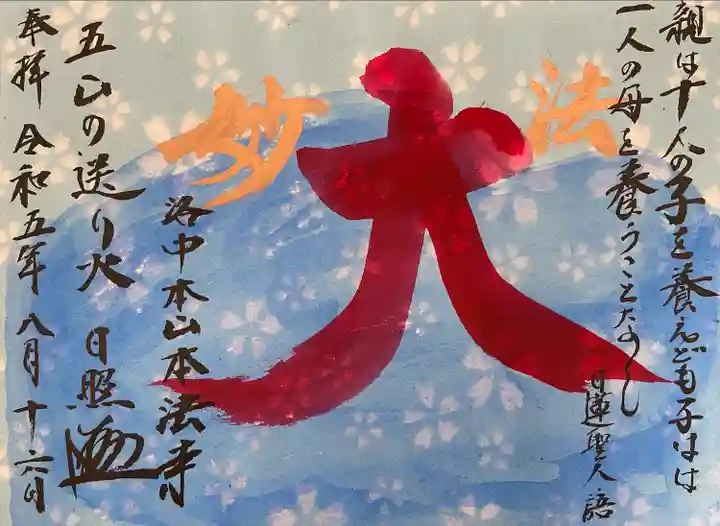 親は十人の子を養えども子はは
一人の母を養うことたのくし
日蓮聖人語
法
大
妙
洛中本山本法寺
日照
五山の送り火
奉拝 令和五年八月十六日